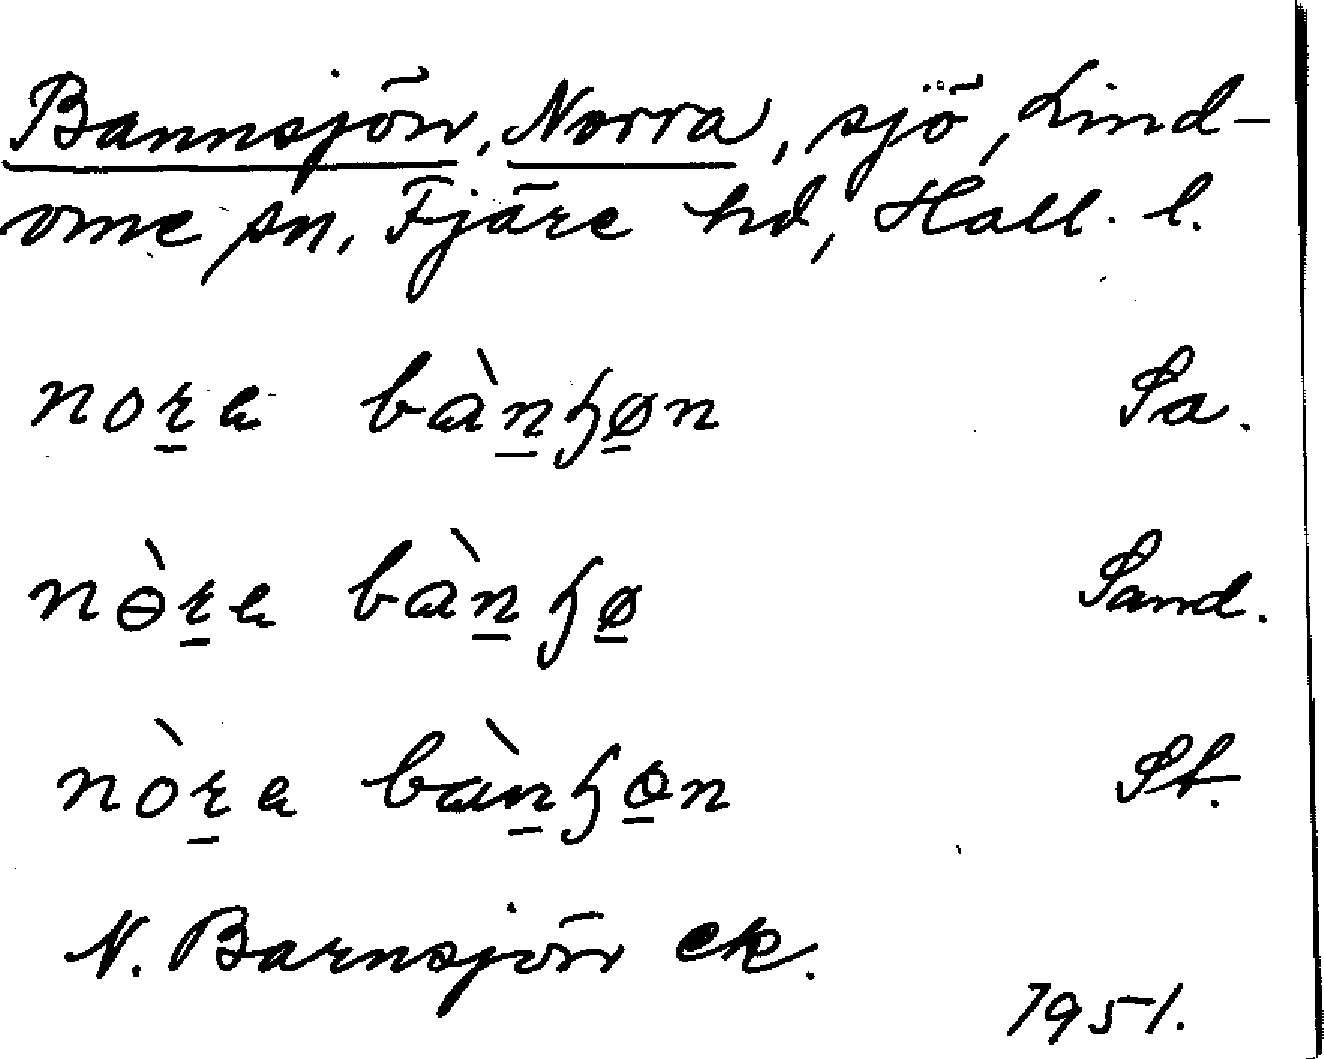 Bannsjön, Norra, sjö, Lind-
ome sn, Fjäre hd, Hall. l.
nora bànʒøn Sa.
nòra bànʒø Sand.
nòra bànʒøn St.
N. Barnsjön ek.
1951.